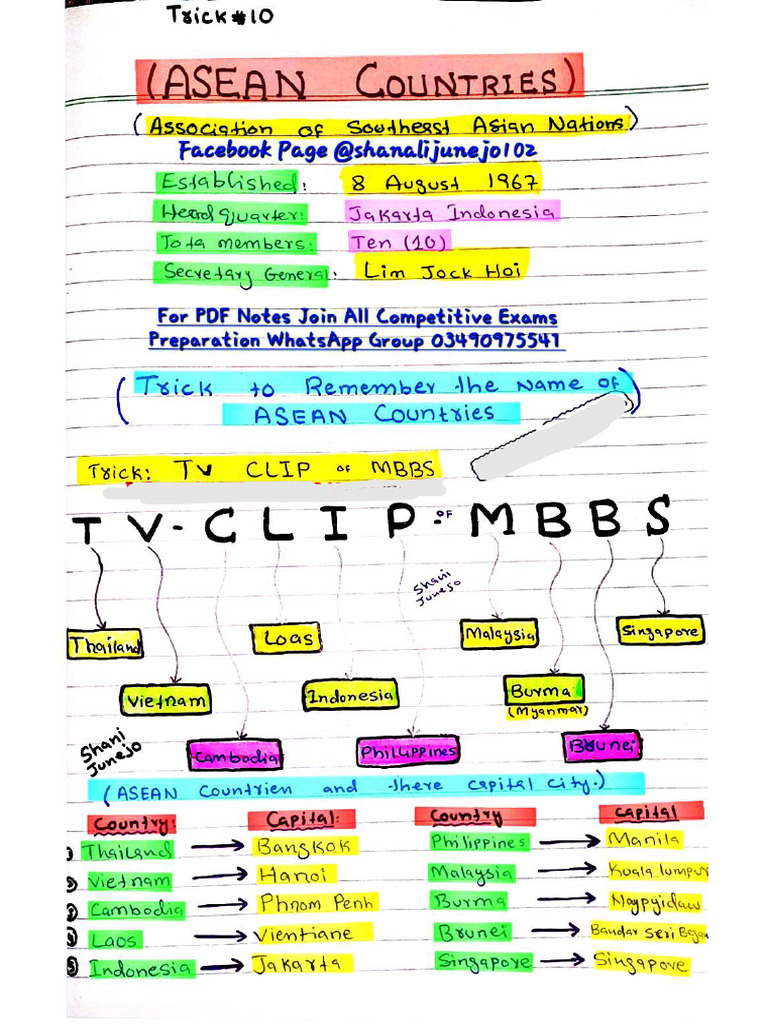 Trick #10
(ASEAN COUNTRIES)
(Association of Southeast Asian Nations)
Facebook Page @shanalijunejo102
Established: 8 August 1967
Headquarter: Jakarta Indonesia
Tota members: Ten (10)
Secretary General: Lim Jock Hoi
For PDF Notes Join All Competitive Exams
Preparation WhatsApp Group 03490975541
(Trick to Remember the Name of)
ASEAN Countries
Trick: TV CLIP OF MBBS
T V - C L I P - OF M B B S
Shani
Junejo
Thailand Loas Malaysia Singapore
Vietnam Indonesia Burma
(Myanmar)
Cambodia Philippines Brunei
Shani
Junejo
(ASEAN Countrien and there capital city.)
Country: Capital: Country Capital
1 Thailand → Bangkok Philippines → Manila
2 Vietnam → Hanoi Malaysia → Kuala lumpur
3 Cambodia → Phnom Penh Burma → Naypyidaw
4 Laos → Vientiane Brunei → Bandar Seri Begaw
5 Indonesia → Jakarta Singapore → Singapore